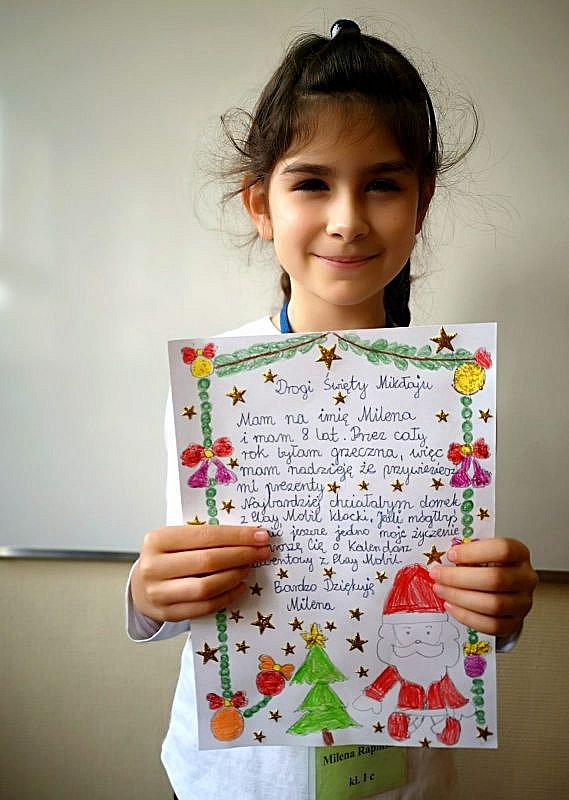 Drogi Święty Mikołaju
Mam na imię Milena
i mam 8 lat. Przez cały
rok byłam grzeczna, więc
mam nadzieję że przywieziesz
mi prezenty
Najbardziej chciałabym domek
z Play Mobil klocki. Jeśli mógłbyś
jeszcze jedno moje życzenie
Cię o Kalendarz
z Play Mobil.
Bardzo Dziękuję
Milena
Milena
kl. I c